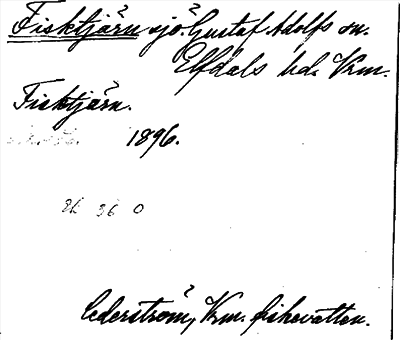 Fisktjärn sjö. Gustaf Adolfs sn.
Elfdals hd. Vrm.
Fisktjärn.
1896.
36 0
Cederström, Vrm. fiskevatten.